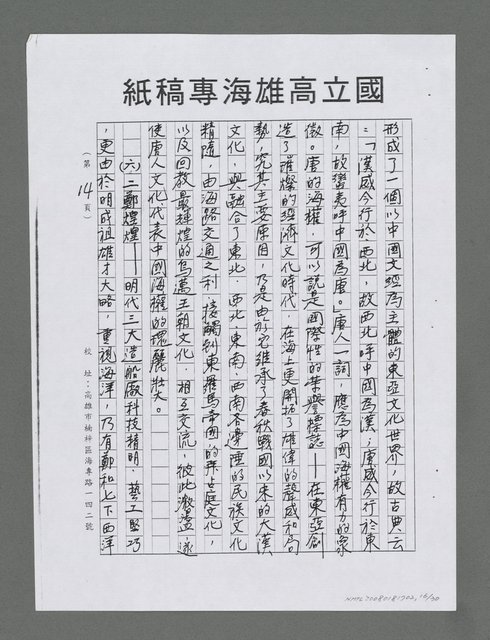 國立高雄海專稿紙
形成了一個以中國文經為主體的東亞文化世界，故古典云
：「漢威令行於西北，故西北呼中國為漢；唐威令行於東
南，故蠻夷呼中國為唐。」唐人一詞，應為中國海權有力的象
徵。唐的海權，可以說是國際性的榮譽標誌——在東亞創
造了璀燦的經濟文化時代，在海上更開拓了雄偉的聲威和局
勢，究其主要原因，乃是由於它繼承了春秋戰國以來的大漢
文化，與融合了東北、西北、東南、西南各邊陲的民族文化
精隨，由海路交通之利，接觸到東羅馬帝國的拜占庭文化，
以及回教最輝煌的烏萬王朝文化，相互交流，彼此激盪，遂
使唐人文化代表中國海權的瑰麗壯大。
(六)二鄭煌煌——明代三大造船廠科技精明，藝工堅巧
，更由於明成祖雄才大略，重視海洋，乃有鄭和七下西洋
（第14頁）
校址：高雄市楠梓區海專路一四二號
NMTL20080181702, 16/30